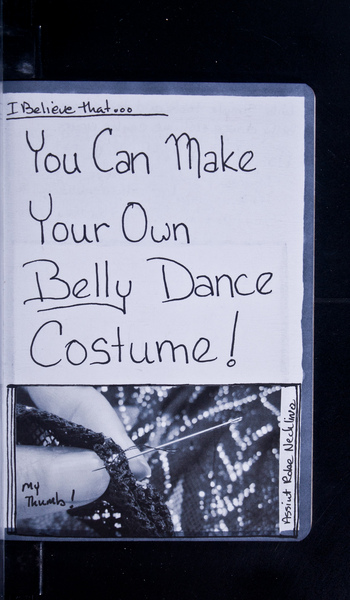 I Believe that...
You Can Make
Your Own
Belly Dance
Costume!
My
Thumb!
Assiut Robe Neckline